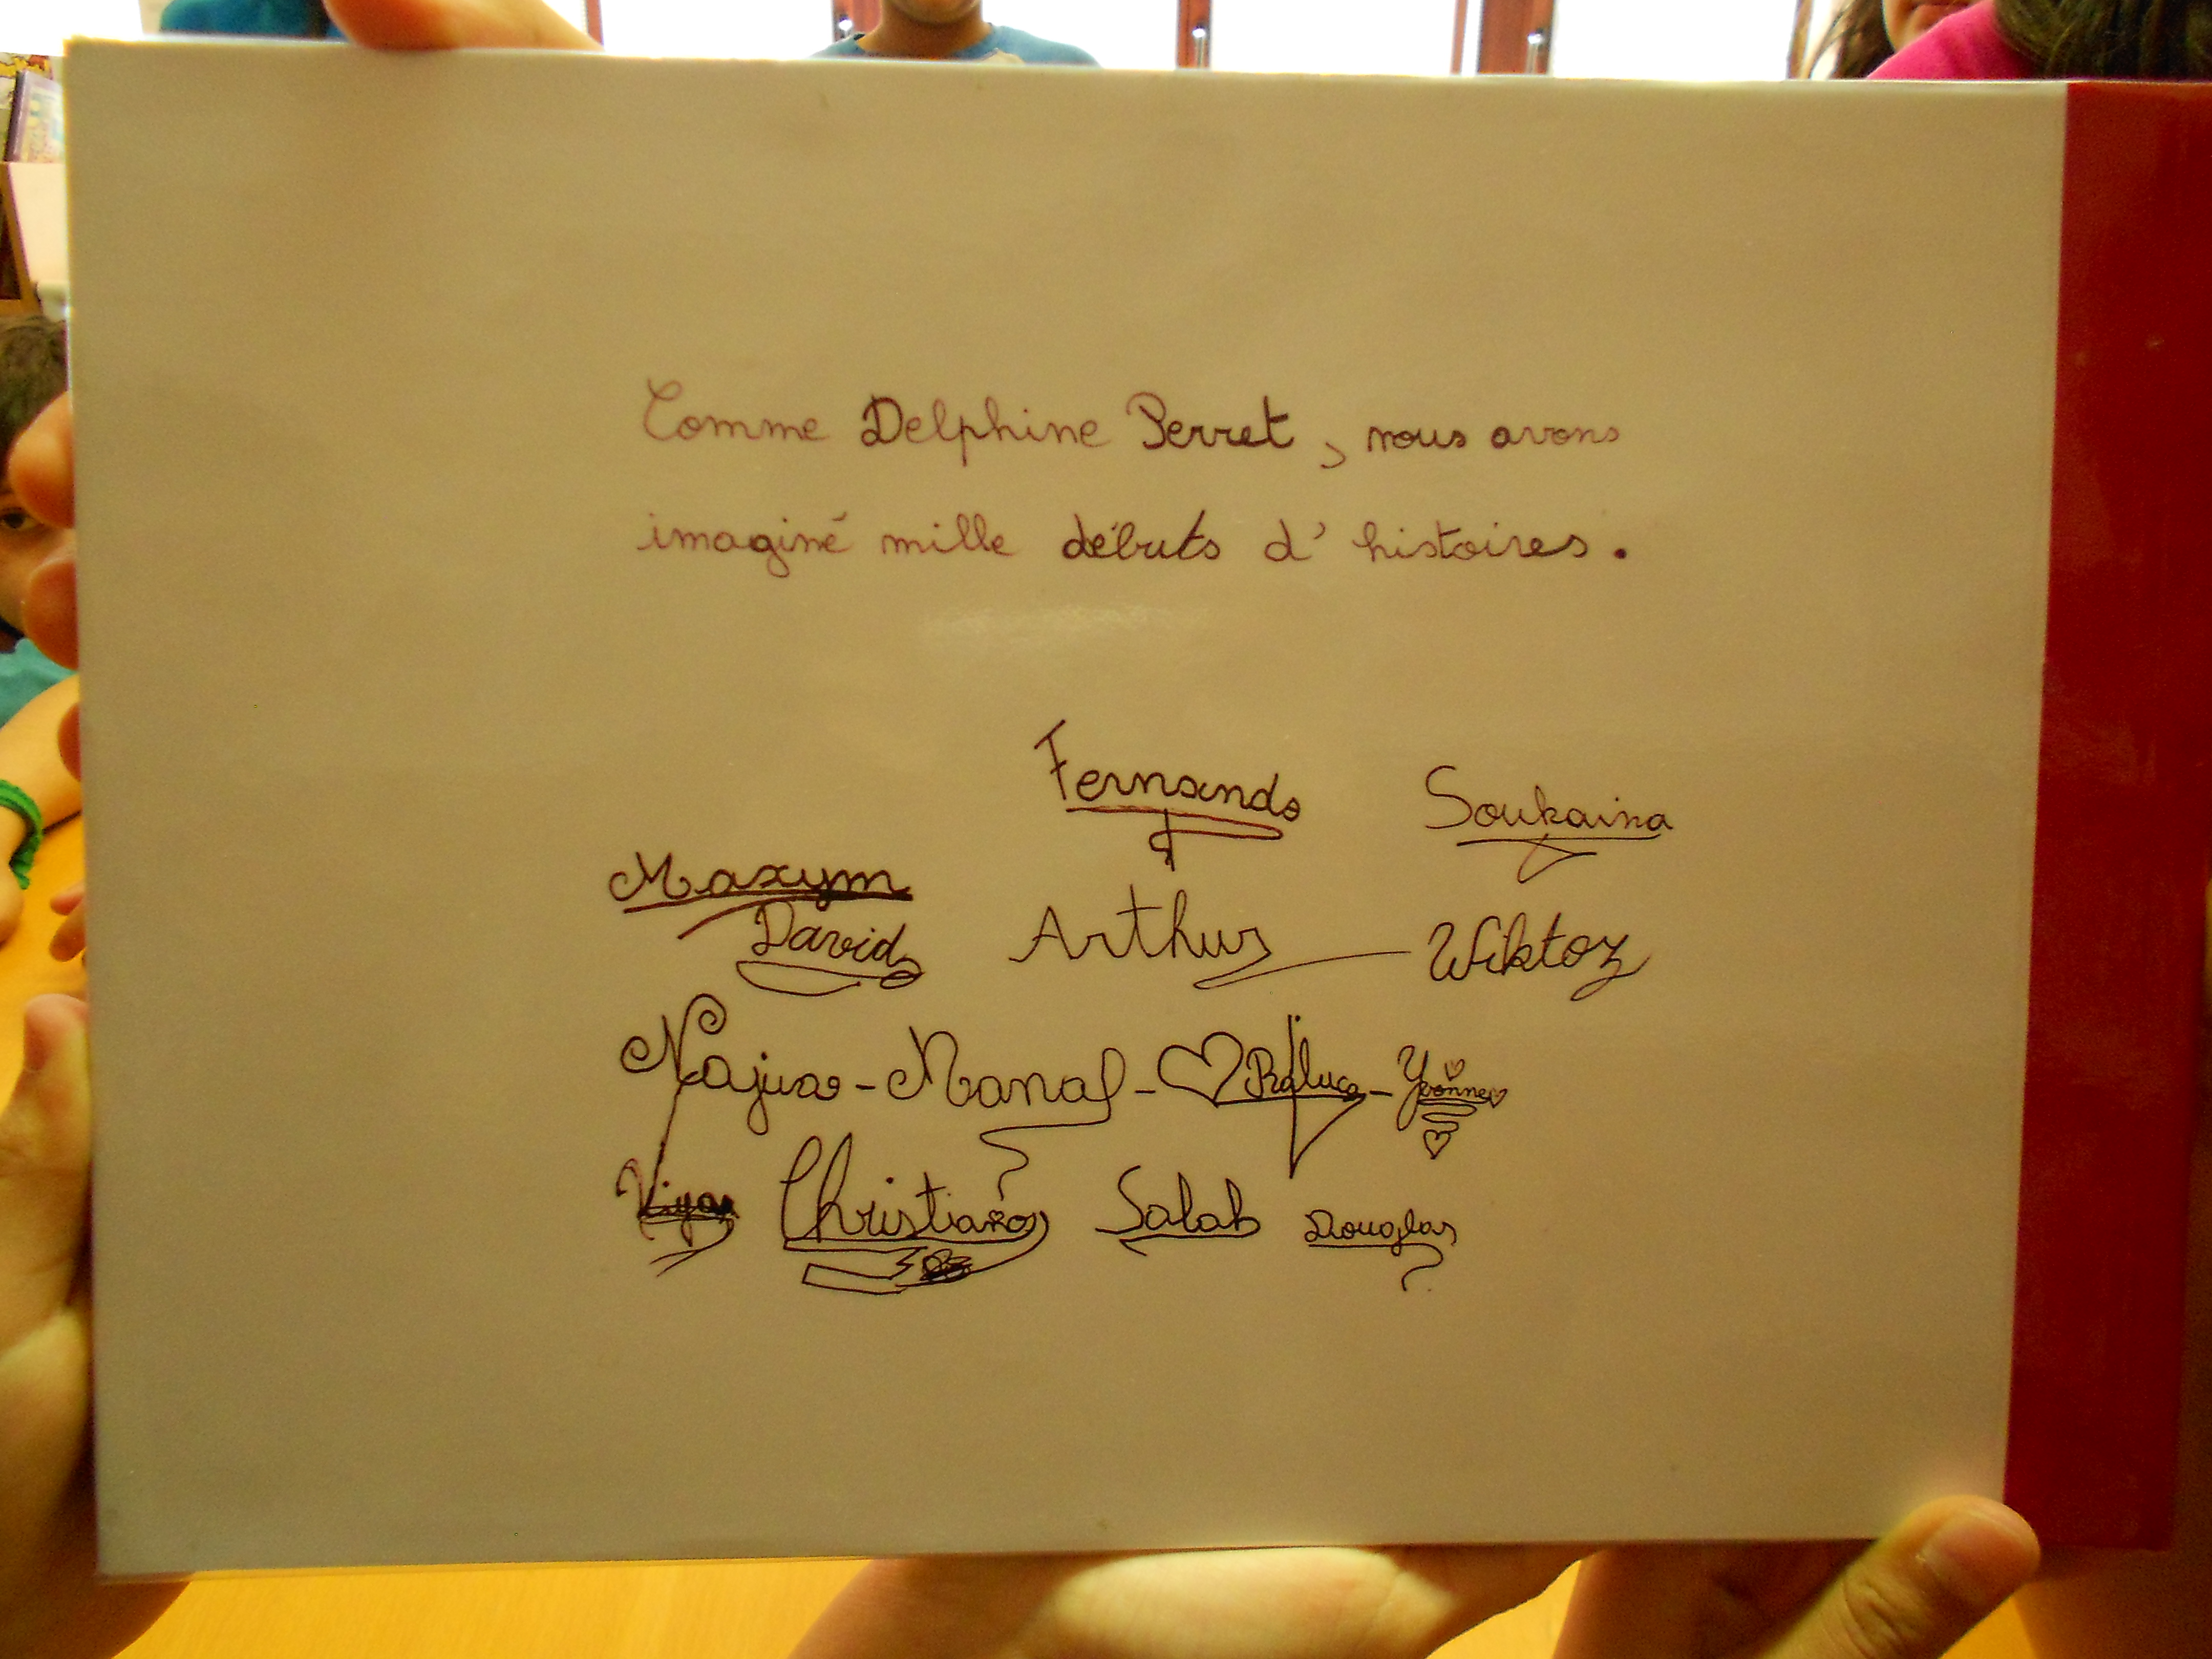 Comme Delphine Perret, nous avons
imaginé mille débuts d'histoires.
Fernando Soukaina
Maxym
David Arthur Wiktor
Najwa - Manal - Raluca - Yvonne
Christiano Salab Douglas